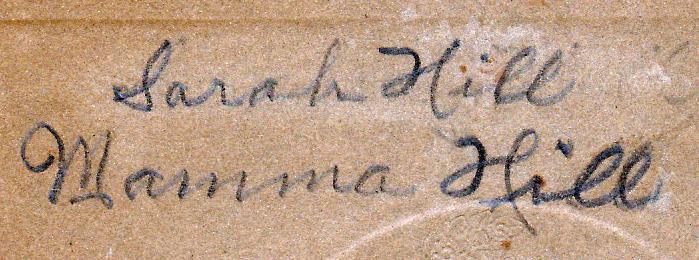 Sarah Hill
Mamma Hill